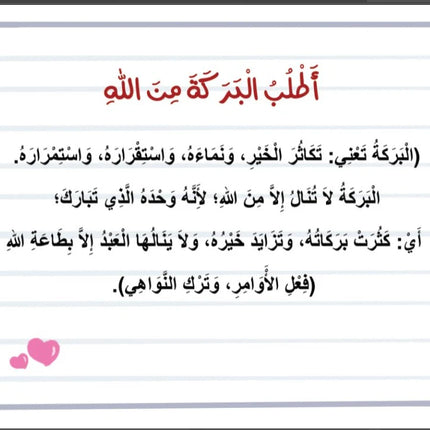 أَطْلُبُ الْبَرَكَةَ مِنَ اللهِ
(الْبَرَكَةُ تَعْنِي: تَكَاثُرَ الْخَيْرِ، وَنَمَاءَهُ، وَاسْتِقْرَارَهُ، وَاسْتِمْرَارَهُ.
الْبَرَكَةُ لاَ تُنَالُ إِلاَّ مِنَ اللهِ؛ لأَنَّهُ وَحْدَهُ الَّذِي تَبَارَكَ؛
أَيْ: كَثُرَتْ بَرَكَاتُهُ، وَتَزَايَدَ خَيْرُهُ، وَلاَ يَنَالُهَا الْعَبْدُ إِلاَّ بِطَاعَةِ اللهِ
(فِعْلِ الأَوَامِرِ، وَتَرْكِ النَّوَاهِي).